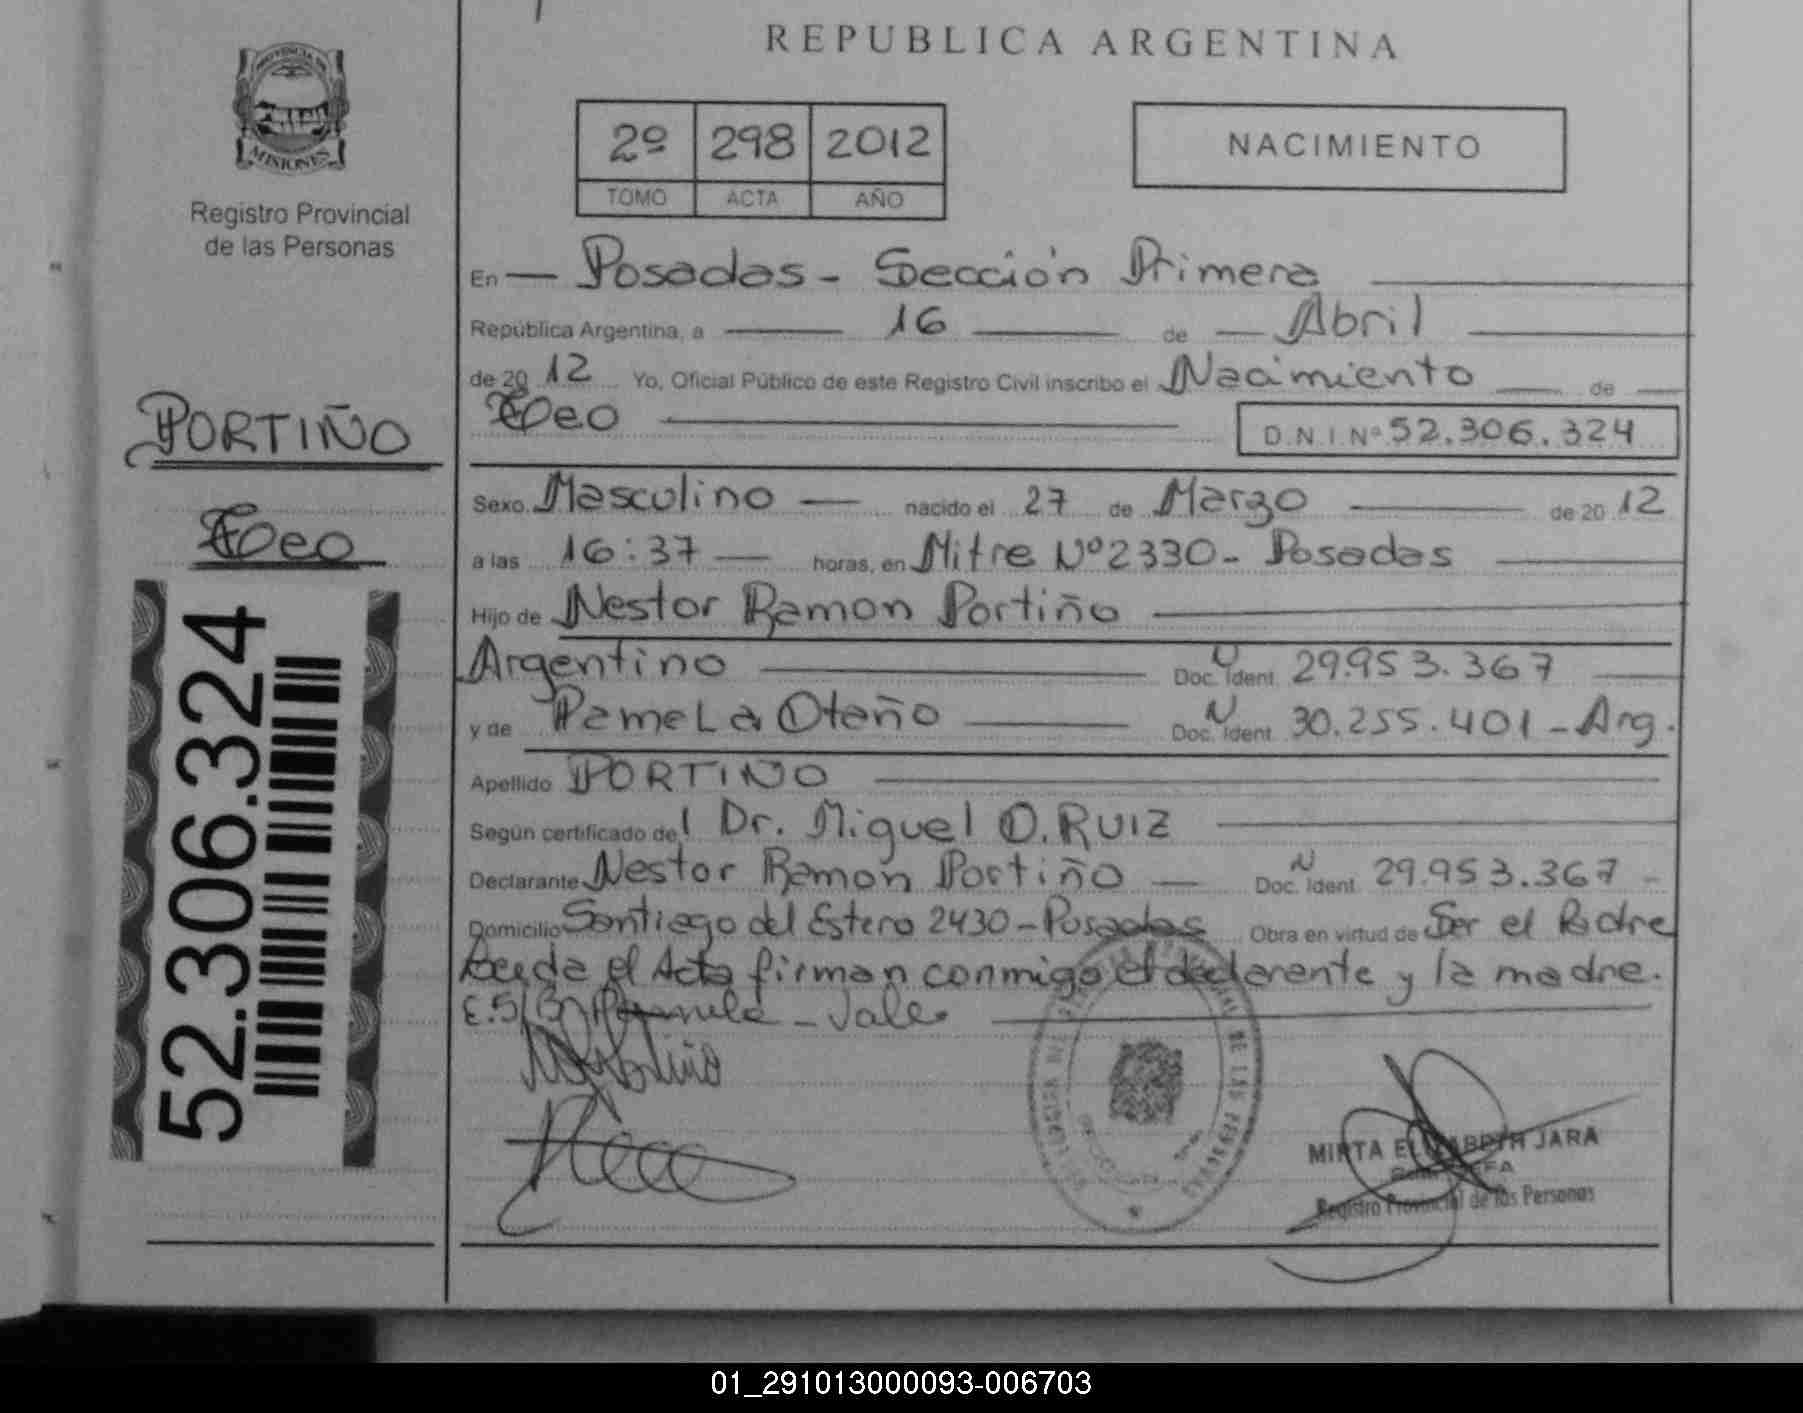 REPUBLICA ARGENTINA
PROVINCIA DE
MISIONES
Registro Provincial
de las Personas
2º 298 2012
TOMO ACTA AÑO
NACIMIENTO
En — Posadas - Sección Primera
República Argentina, a 16 de Abril
de 20 12 Yo, Oficial Público de este Registro Civil inscribo el Nacimiento de
Teo
D.N.I. Nº 52.306.324
PORTIÑO
Teo
52.306.324
Sexo Masculino — nacido el 27 de Marzo de 20 12
a las 16:37 — horas, en Mitre Nº 2330 - Posadas
Hijo de Nestor Ramon Portiño
Argentino Doc. Ident. 29.953.367
y de Pamela Otaño Doc. Ident. 30.255.401 - Arg.
Apellido PORTIÑO
Según certificado del Dr. Miguel O. RUIZ
Declarante Nestor Ramon Portiño — Doc. Ident. 29.953.367 -
Domicilio Santiago del Estero 2430 - Posadas Obra en virtud de Ser el Padre
Leida el Acta firman conmigo el declarante y la madre.
Vale
MIRTA ELIZABETH JARA
Registro Provincial de las Personas
01_291013000093-006703